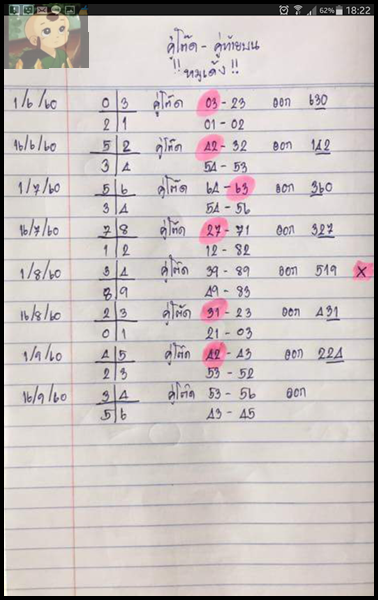 62% 18:22
คู่โต๊ด - คู่ท้ายบน
!! หมูเด้ง !!
1/6/60 0 3 คู่โต๊ด 03 - 23 ออก 630
2 1 01 - 02
16/6/60 5 2 คู่โต๊ด 42 - 32 ออก 142
3 4 54 - 53
1/7/60 5 6 คู่โต๊ด 64 - 63 ออก 360
3 4 54 - 56
16/7/60 7 8 คู่โต๊ด 27 - 71 ออก 327
1 2 12 - 82
1/8/60 3 4 คู่โต๊ด 39 - 89 ออก 519 X
8 9 49 - 83
16/8/60 2 3 คู่โต๊ด 31 - 23 ออก 431
0 1 21 - 03
1/9/60 4 5 คู่โต๊ด 42 - 43 ออก 224
2 3 53 - 52
16/9/60 3 4 คู่โต๊ด 53 - 56 ออก
5 6 43 - 45